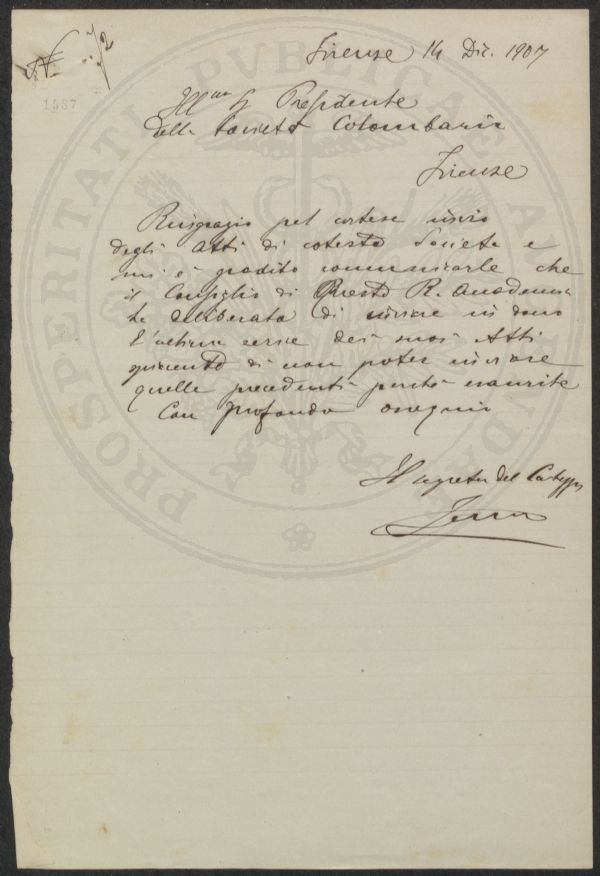 N. 72
1587
Firenze 14 Dic. 1907
Ill^mo Sr Presidente
della Società Colombaria
Firenze
Ringrazio pel cortese invio
degli Atti di cotesta Società e
mi è gradito comunicarle che
il Consiglio di Questa R. Accademia
ha deliberato di inviare in dono
l'ultima serie dei suoi Atti
di non poter inviare
quelle precedenti perché esaurite
Con profondo ossequio
Il segretar del Carteggi
PROSPERITATI PVBLICAE AVGENDAE